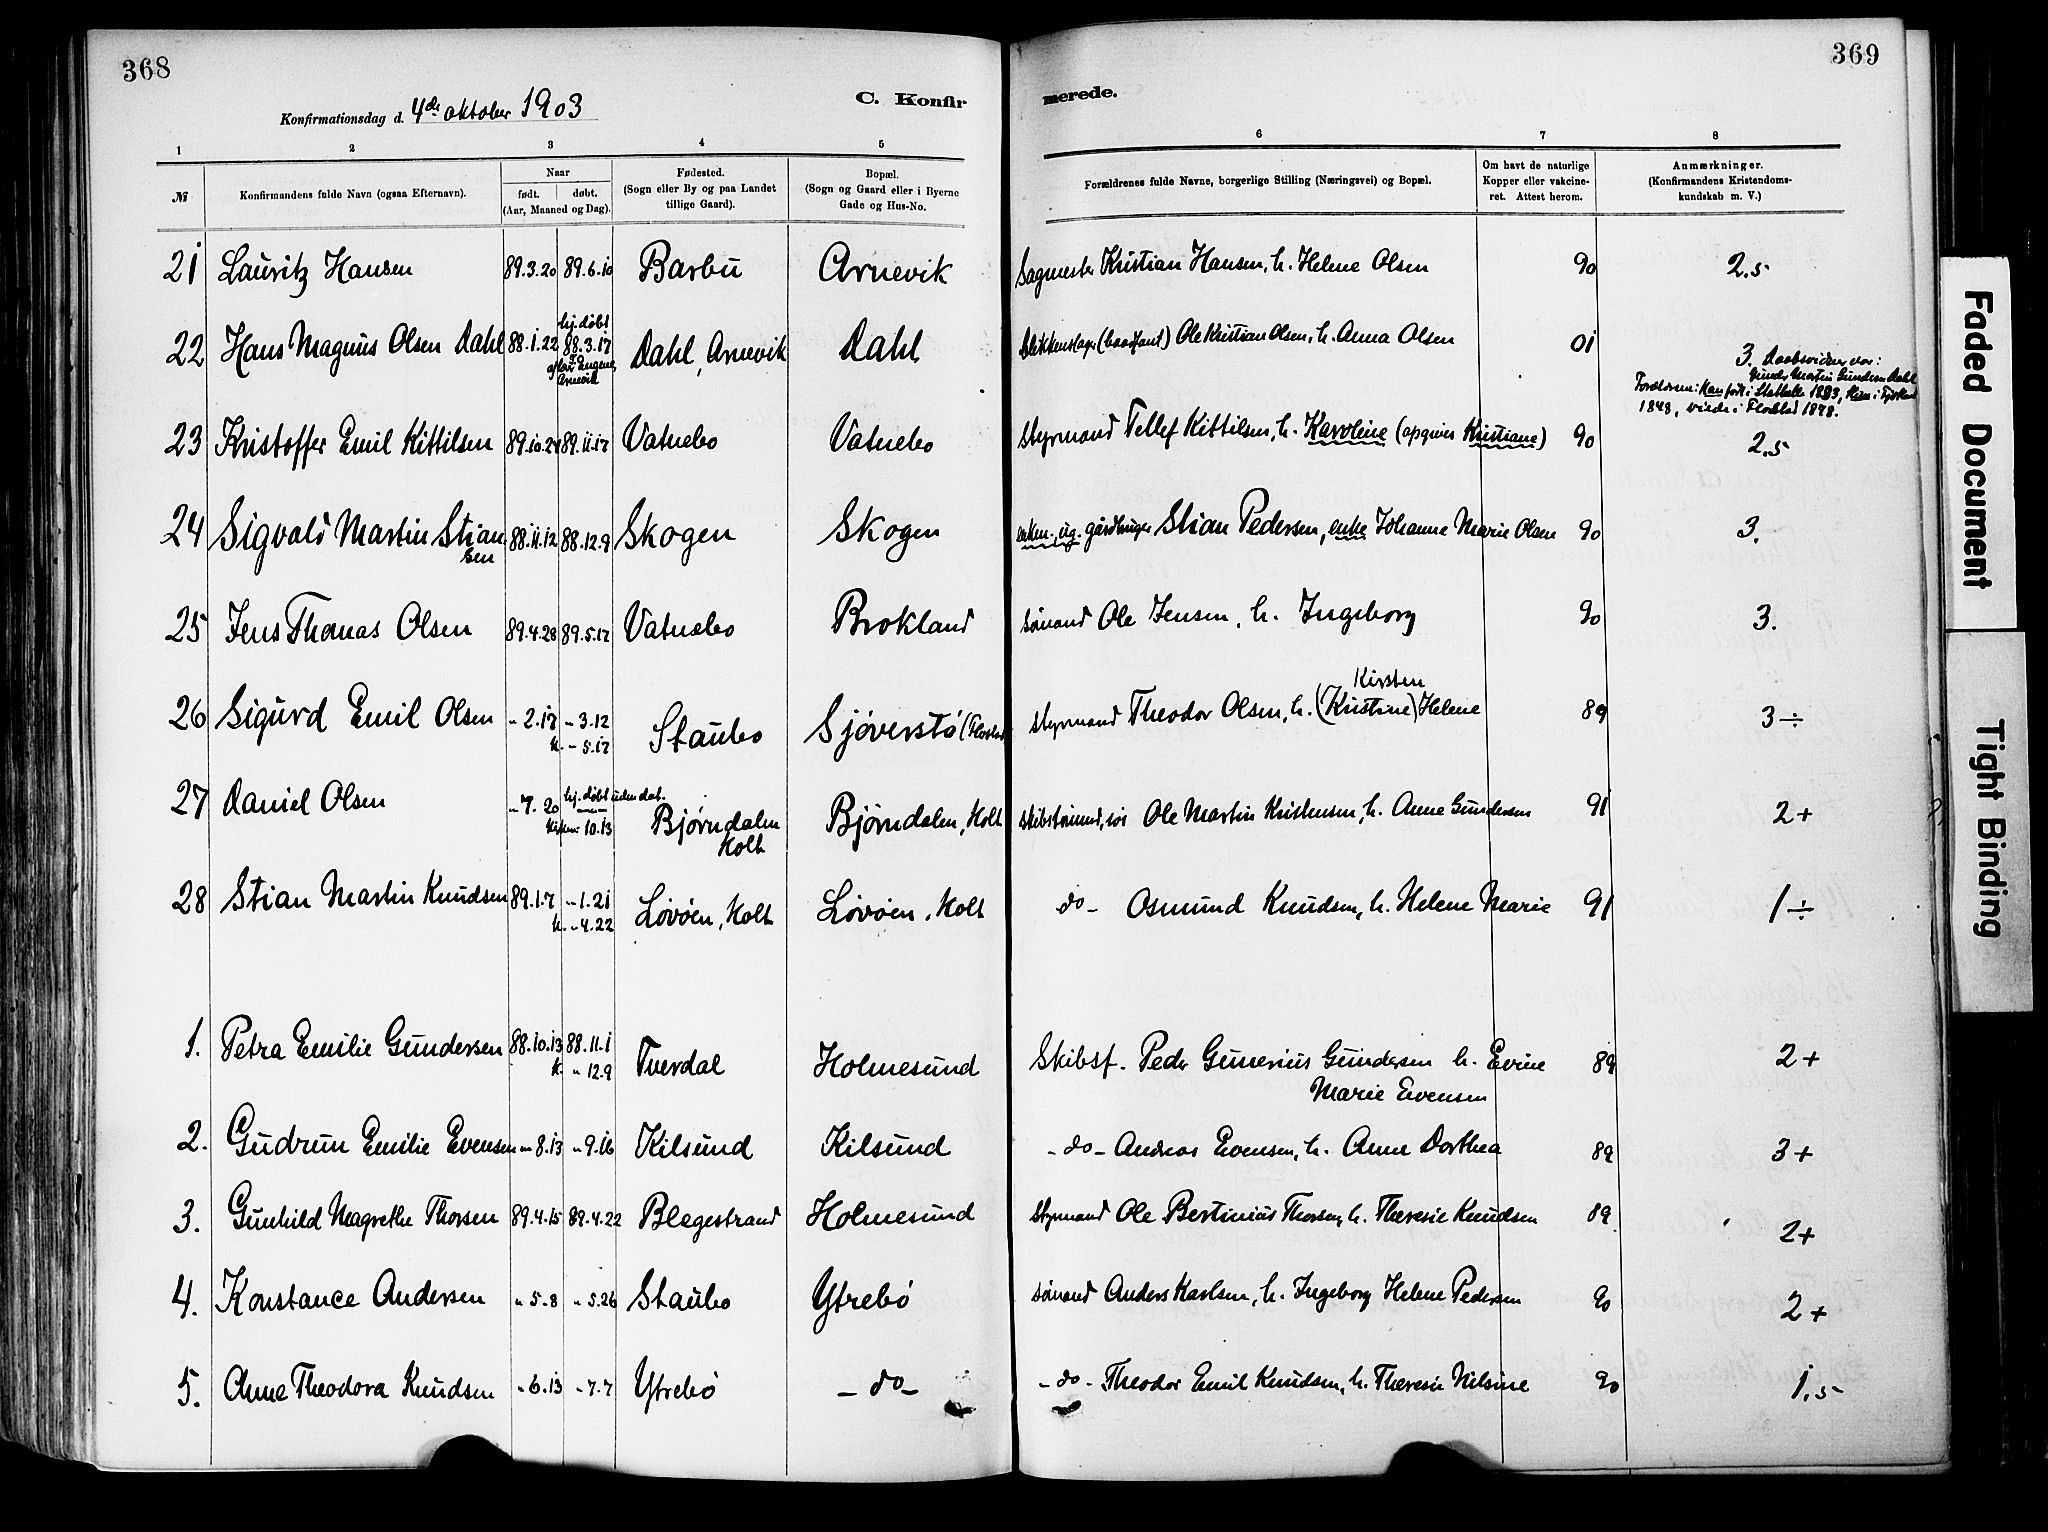 368
369
Konfirmationsdag d. 4de oktober 1903
C. Konfirmerede.
1 2 3 4 5 6 7 8
№ Konfirmandens fulde Navn (ogsaa Efternavn). Naar født. døbt. (Aar, Maaned og Dag). Fødested. (Sogn eller By og paa Landet tillige Gaard). Bopæl. (Sogn og Gaard eller i Byerne Gade og Hus-No. Forældrenes fulde Navne, borgerlige Stilling (Næringsvei) og Bopæl. Om havt de naturlige Kopper eller vakcineret. Attest herom. Anmærkninger. (Konfirmandens Kristendomskundskab m. V.)
21 Lauritz Hansen 89.3.20 89.6.10 Barbu Arnevik Sagmester Kristian Hansen, h. Helene Olsen 90 2.5
22 Hans Magnus Olsen Dahl 88.1.22 hj. døbt 88.3.17 Arnevik Dahl, Arnevik Dahl Blikkenslager Ole Kristian Olsen, h. Anna Olsen 01 3.
Gunder Martin Gundersen Dahl
Forældrene: Han født i Stathelle
1848, viede i Flostad 1878.
23 Kristoffer Emil Kittilsen 89.10.24 89.11.17 Vatnebo Vatnebo Styrmand Tellef Kittilsen, h. Karoline (opgives Kristiane) 90 2.5
24 Sigvald Martin Stiansen 88.11.12 88.12.9 Skogen Skogen gårdbruger Stian Pedersen, enke Johanne Marie Olsen 90 3.
25 Jens Thomas Olsen 89.4.28 89.5.17 Vatnebo Brokland sømand Ole Jensen, h. Ingeborg 90 3.
26 Sigurd Emil Olsen - 2.17 - 3.12 k. - 5.17 Staubo Sjøverstø (Flostad) styrmand Theodor Olsen, h. (Kristine) Kirsten Helene 89 3÷
27 Daniel Olsen - 7.20 hj. døbt uden dat. kirken 10.13 Bjørndalen Holt Bjørndalen, Holt skibstømmerm. Ole Martin Kristensen, h. Anne Gundersen 91 2+
28 Stian Martin Knudsen 89.1.7 - 1.21 k. - 4.22 Løvøen, Holt Løvøen, Holt - do - Osmund Knudsen, h. Helene Marie 91 1÷
1. Petra Emilie Gundersen 88.10.13 88.11.1 k. " 12.9 Tverdal Holmesund Skibsf. Peder Gunerius Gundersen h. Evine Marie Evensen 89 2+
2. Gudrun Emilie Evensen " 8.13 " 9.16 Kilsund Kilsund - do - Andreas Evensen, h. Anne Dorthea 89 3+
3. Gunhild Magrethe Thorsen 89.4.15 89.4.22 Blegestrand Holmesund Styrmand Ole Bertinius Thorsen, h. Theresie Knudsen 89 2+
4. Konstance Andersen " 5.8 " 5.26 Staubo Ytrebø sømand Anders Karlsen, h. Ingeborg Helene Pedersen 90 2+
5. Anne Theodora Knudsen - 6.13 - 7.7 Ytrebø - do - - do - Theodor Emil Knudsen, h. Theresie Nilsine 90 1.5
Faded Document
Tight Binding